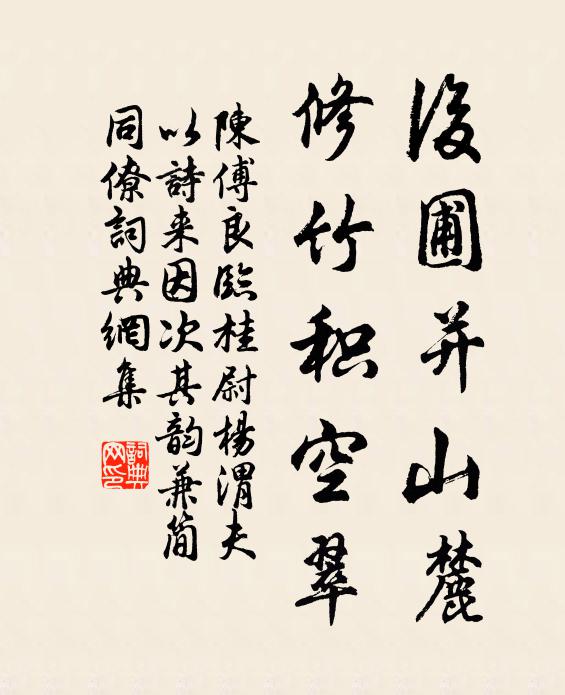 後圃并山麓
修竹积空翠
陳傅良臨桂尉楊渭夫
以詩来因次其韵兼简
同僚詞典網集
詞典网印